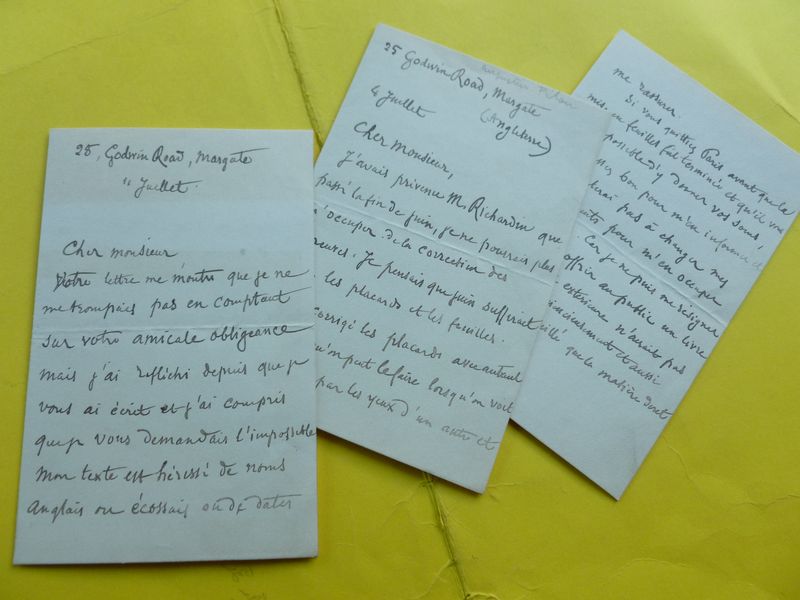 25, Godwin Road, Margate
4 Juillet.
Cher monsieur
Votre lettre me montre que je ne
me trompais pas en comptant
sur votre amicale obligeance
mais j'ai réfléchi depuis que je
vous ai écrit et j'ai compris
que je vous demandais l'impossible
Mon texte est hérissé de noms
Anglais ou écossais ou de dates
25 Godwin Road, Margate
(Angleterre)
4 Juillet
Cher Monsieur,
J'avais prévenu M. Richardin que
passé la fin de juin, je ne pourrais plus
m'occuper de la correction des
épreuves. Je pensais que juin suffirait
les placards et les feuilles.
corrigé les placards avec autant
qu'on peut le faire lorsqu'on voit
par les yeux d'un autre et
me rassurer.
Si vous quittiez Paris avant que la
mise en feuilles fut terminée et qu'il vous
possible d'y donner vos soins,
assez bon pour m'en informer
pas à changer mes
pour m'en occuper
Car je ne puis me résigner
offrir au public un livre
extérieure n'aurait pas
consciencieusement et aussi
que la matière